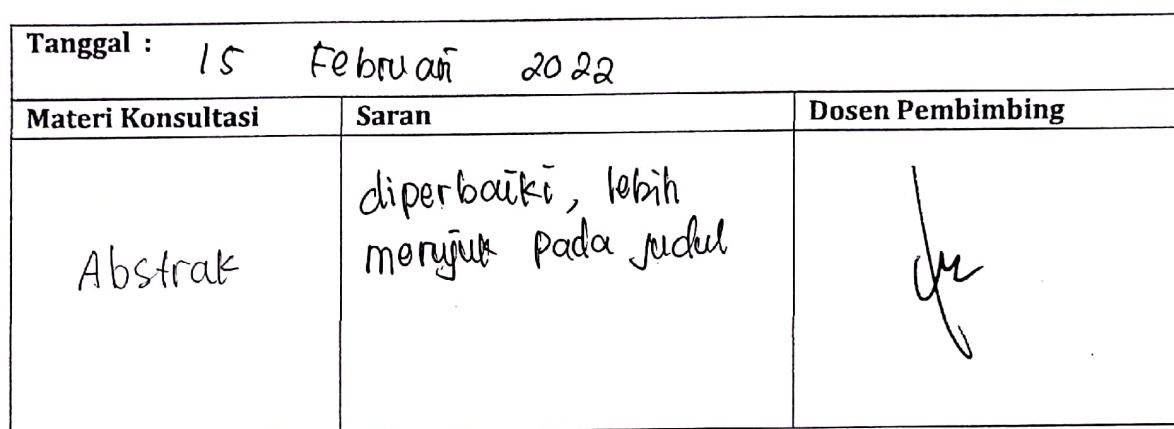 Tanggal : 15 Februari 2022
Materi Konsultasi Saran Dosen Pembimbing
diperbaiki, lebih
Abstrak merujuk pada judul